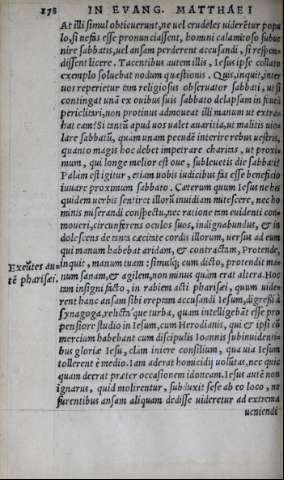 178 IN EVANG. MATTHAEI
At illi simul obticuerunt, ne uel crudeles uiderētur popu
lo, si nefas esse pronunciassent, homini calamitoso subue
nire sabbatis, uel ansam perderent accusandi, si respon-
dissent licere. Tacentibus autem illis, Iesus ipse collato
exemplo soluebat nodum quæstionis. Quis, inquit, inter
uos reperietur tam religiosus obseruator sabbati, ut si
contingat unā ex ouibus suis sabbato delapsam in foueā
periclitari, non protinus admoueat illi manum ut extra-
hat eam? Si tanti apud uos ualet auaritia, ut malitis uio
lare sabbatū, quam unam pecudē interire rebus uestris,
quanto magis hoc debet impetrare charitas, ut proxi-
mum, qui longe melior est oue, subleuetis die sabbati?
Palàm est igitur, etiam uobis iudicibus fas esse beneficio
iuuare proximum sabbato. Cæterum quum Iesus ne his
quidem uerbis sentiret illorū inuidiam mitescere, nec ho
minis miserandi conspectu, nec ratione tam euidenti com
moueri, circunferens oculos suos, indignabundus, & in
dolescens de tanta cæcitate cordis illorum, uersus ad eum
qui manum habebat aridam, & contractam, Protende,
inquit, manum tuam: simulq; cum dicto, protendit ma-
Exeūtes au num sanam, & agilem, non minus quàm erat altera. Hoc
tē pharisæi. tam insigni facto, in rabiem acti pharisæi, quum uide-
rent hanc ansam sibi ereptam accusandi Iesum, digressi à
synagoga, relicta que turba, quam intelligebāt esse pro
pensiore studio in Iesum, cum Herodianis, qui & ipsi cō
mercium habebant cum discipulis Ioannis subinuidenti-
bus gloriæ Iesu, clàm iniere consilium, qua uia Iesum
tollerent è medio. Iam aderat homicidij uolūtas, nec quic
quam deerat præter occasionem idoneam. Iesus autē non
ignarus, quid molirentur, subduxit sese ab eo loco, ne
furentibus ansam aliquam dedisse uideretur ad extrema
ueniendi